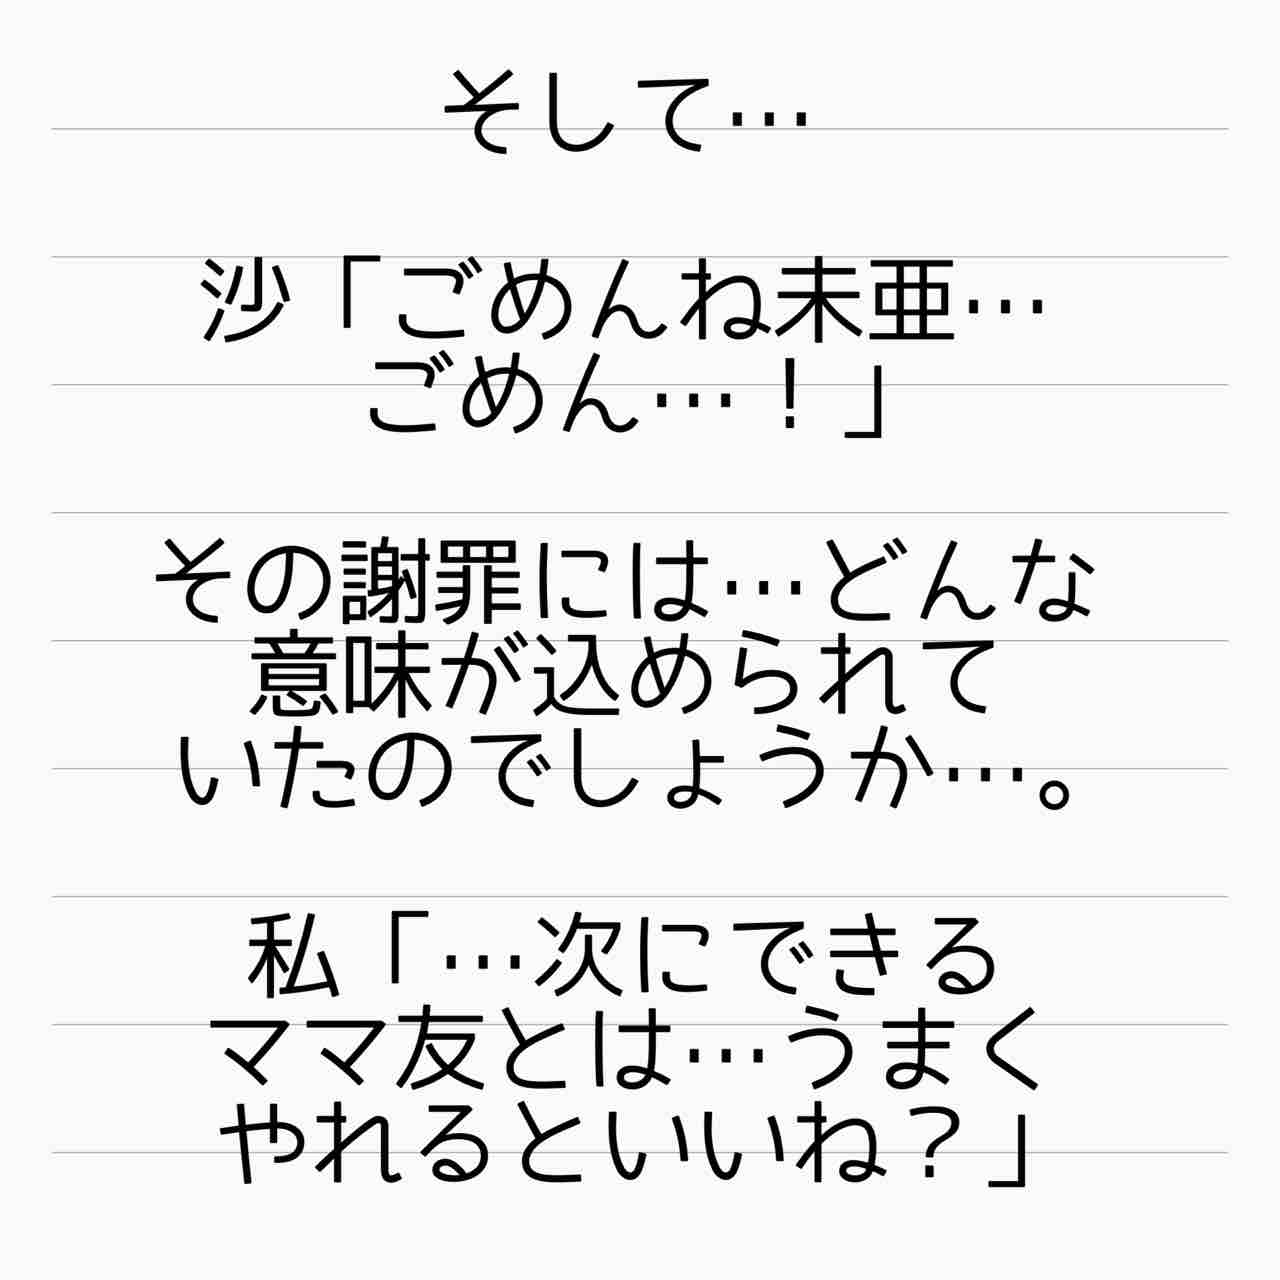 そして…
沙「ごめんね未亜…
ごめん…！」
その謝罪には…どんな
意味が込められて
いたのでしょうか…。
私「…次にできる
ママ友とは…うまく
やれるといいね？」